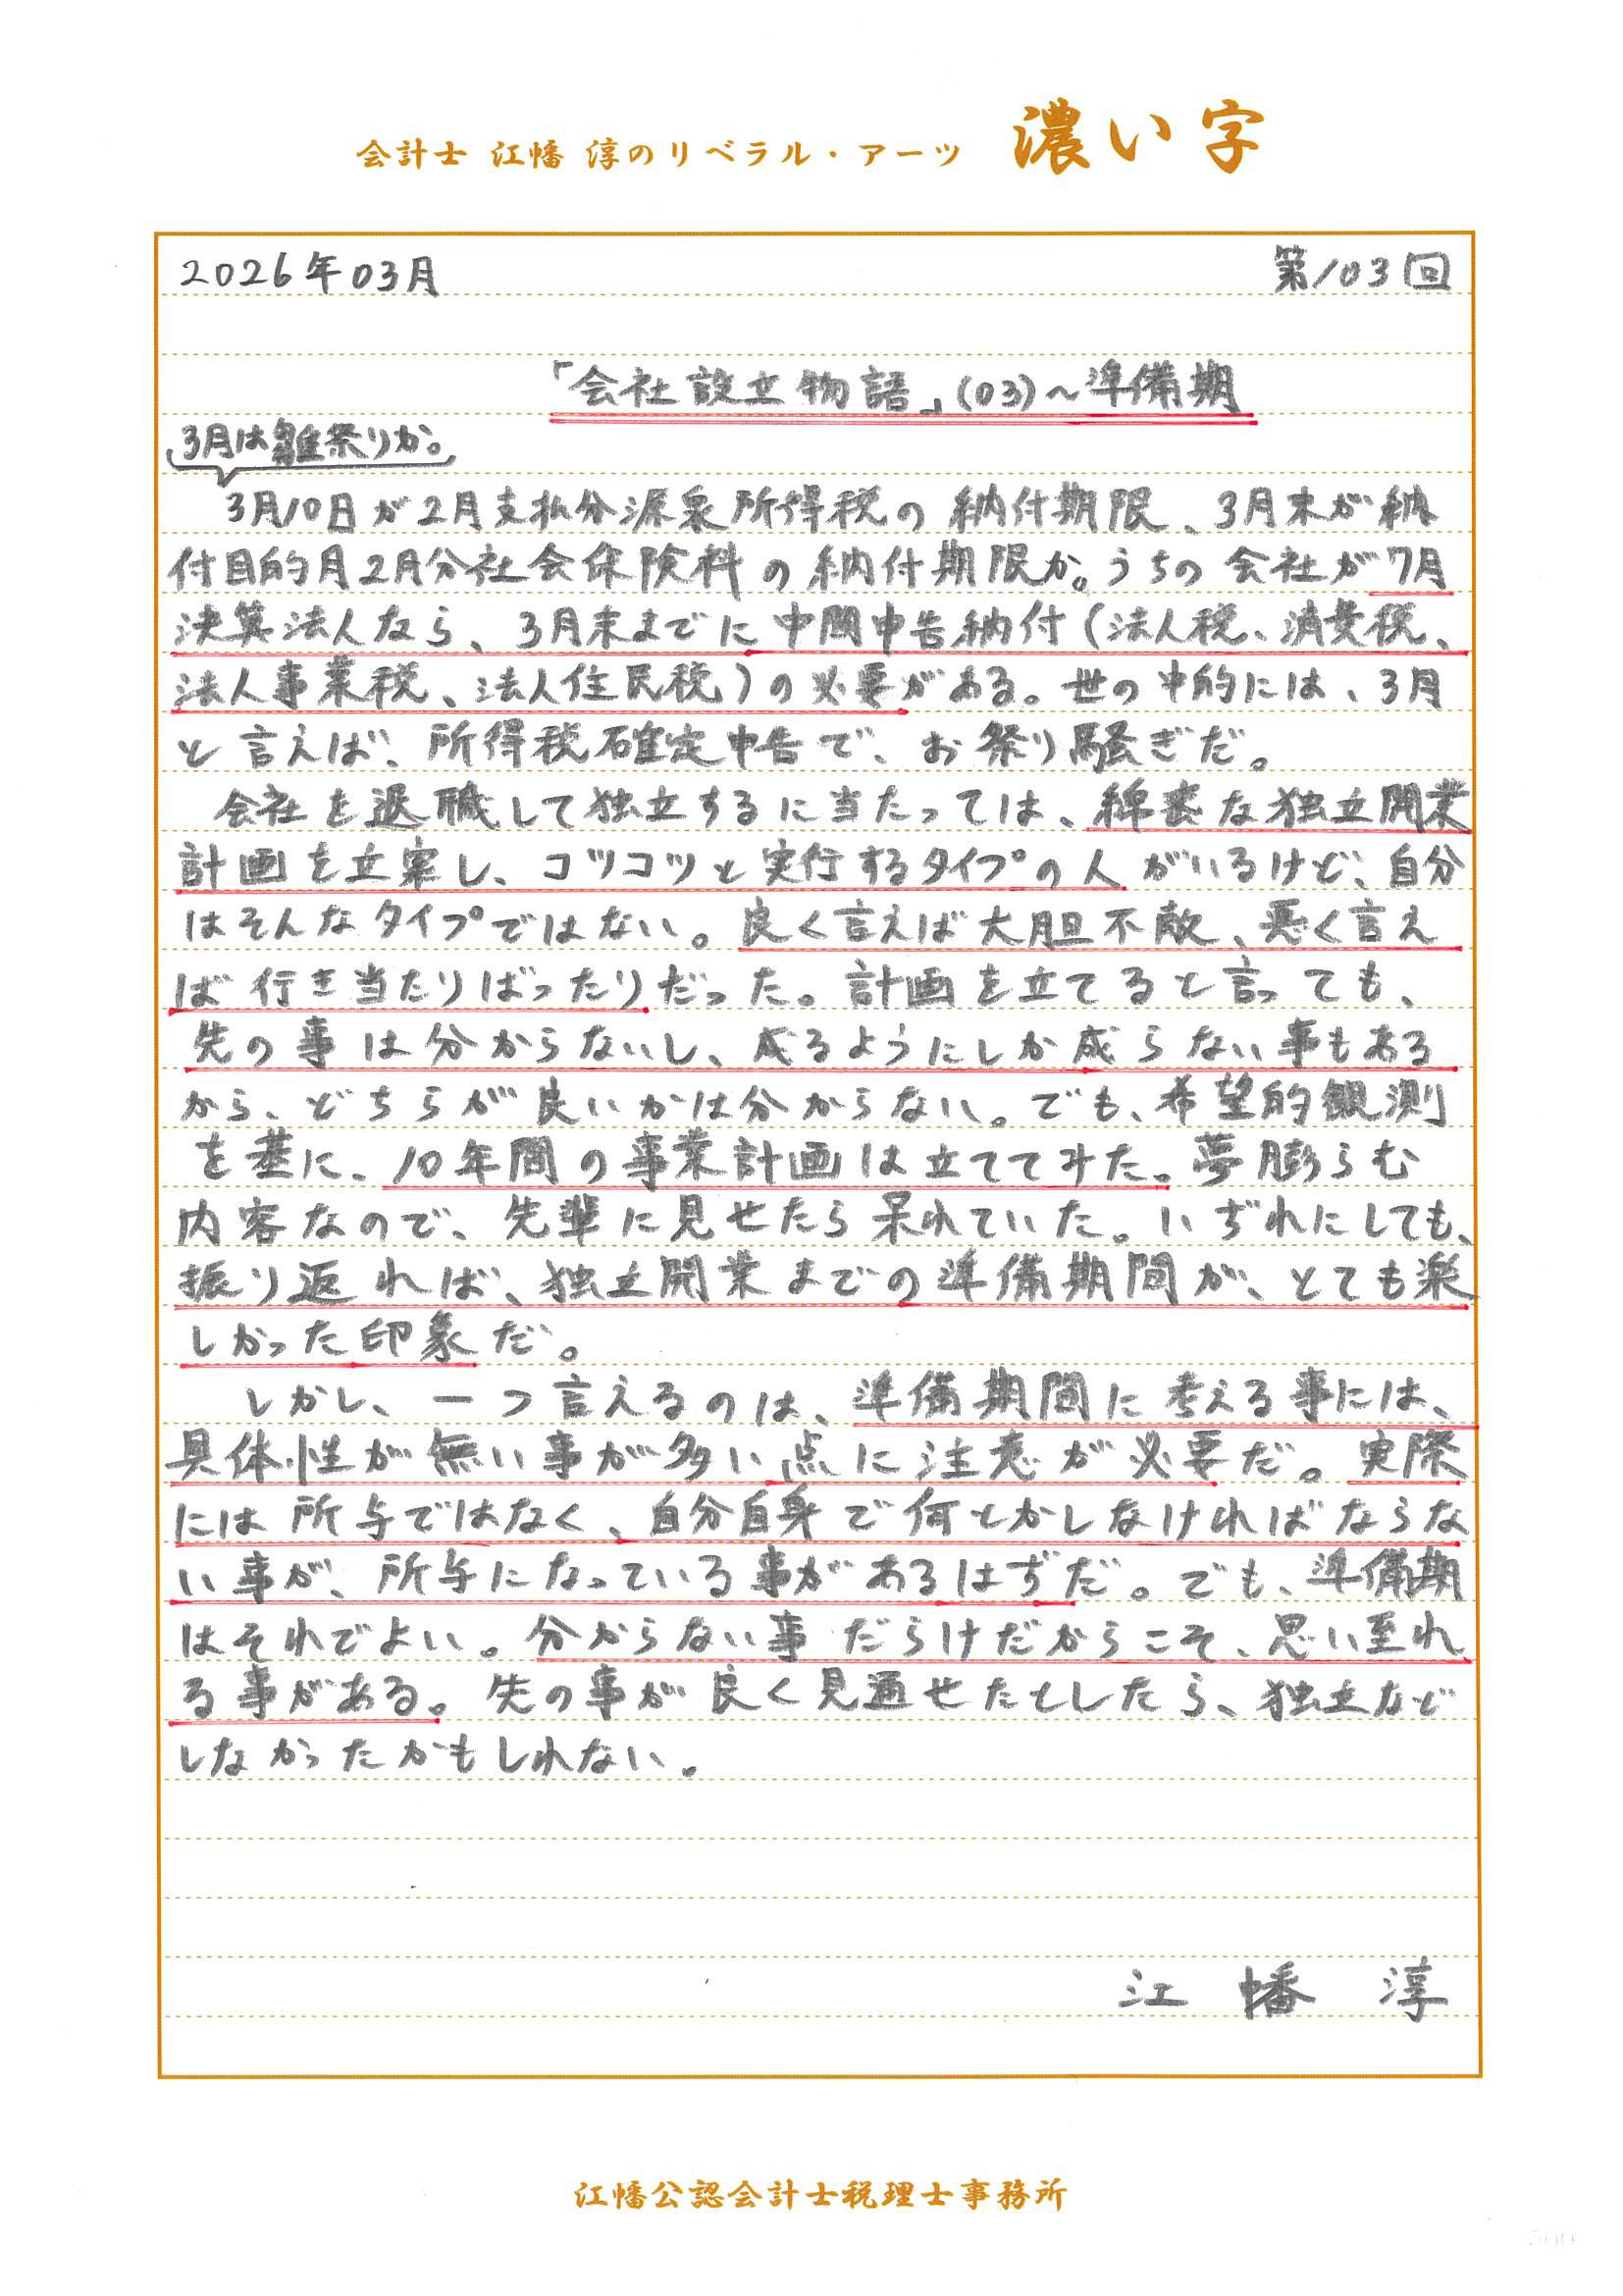 会計士 江幡 淳のリベラル・アーツ 濃い字
2026年03月 第103回
「会社設立物語」(03)～準備期
3月は雛祭りか。
3月10日が2月支払分源泉所得税の納付期限、3月末が納
付目的月2月分社会保険料の納付期限か。うちの会社が7月
決算法人なら、3月末までに中間申告納付(法人税、消費税、
法人事業税、法人住民税)の必要がある。世の中的には、3月
と言えば、所得税確定申告で、お祭り騒ぎだ。
会社を退職して独立するに当たっては、綿密な独立開業
計画を立案し、コツコツと実行するタイプの人がいるけど、自分
はそんなタイプではない。良く言えば大胆不敵、悪く言え
ば行き当たりばったりだった。計画を立てると言っても、
先の事は分からないし、成るようにしか成らない事もある
から、どちらが良いかは分からない。でも、希望的観測
を基に、10年間の事業計画は立ててみた。夢膨らむ
内容なので、先輩に見せたら呆れていた。いずれにしても、
振り返れば、独立開業までの準備期間が、とても楽
しかった印象だ。
しかし、一つ言えるのは、準備期間に考える事には、
具体性が無い事が多い点に注意が必要だ。実際
には所与ではなく、自分自身で何とかしなければならな
い事が、所与になっている事があるはずだ。でも、準備期
はそれでよい。分からない事だらけだからこそ、思い至れ
る事がある。先の事が良く見通せたとしたら、独立など
しなかったかもしれない。
江幡 淳
江幡公認会計士税理士事務所